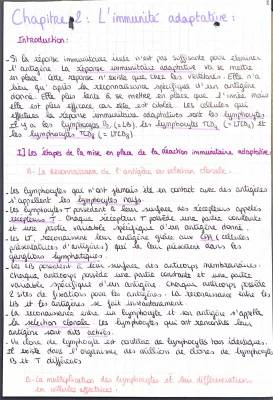 Chapitre 2: L'immunité adaptative:
Introduction:
- Si la réponse immunitaire innée n'est pas suffisante pour éliminer
l'antigène, la réponse immunitaire adaptative va se mettre
en place. Cette réponse n'existe que chez les vertébrés. Elle n'a
lieu qu'après la reconnaissance spécifique d'un antigène
donné. Elle est plus lente à se mettre en place que l'innée mais
elle est plus efficace car elle est ciblée. Les cellules qui
effectuent la réponse immunitaire adaptatives sont les lymphocytes
Il y a les lymphocytes B, (=LB), les lymphocytes TCD4 (=LTCD4) et
les lymphocytes TCD8 (=LTCD8)
I] Les étapes de la mise en place de la réaction immunitaire adaptative:
A- La reconnaissance de l'antigène ou sélection clonale.
Les lymphocytes qui n'ont jamais été en contact avec des antigènes
s'appellent les lymphocytes naïfs.
Les lymphocytes T possèdent à leur surface des récepteurs appelés
récepteurs T. Chaque récepteurs T possède une partie constante
et une partie variable spécifique d'un antigène donné.
Les LT reconnaissent leur antigène grâce aux CPA (cellules
présentatrices d'antigènes) qui le leur présentent dans les
ganglions lymphatiques.
Les LB possèdent à leur surface des anticorps membranaires.
Chaque anticorps possède une partie constante et une partie
variable spécifique d'un antigène. Chaque anticorps possède
2 sites de fixation pour les antigènes. La reconnaissance entre les
LB et les antigènes se fait directement
La reconnaissance entre un lymphocyte et son antigène s'appelle
la sélection clonale. Les lymphocytes qui ont rencontrés leur
antigène sont dits activés.
Un clone de lymphocyte est constitué de lymphocytes tous identiques.
Il existe dans l'organisme des millions de clones de lymphocytes
B et T différents
B- La multiplication des lymphocytes et leur différenciation
en cellules effectrices.